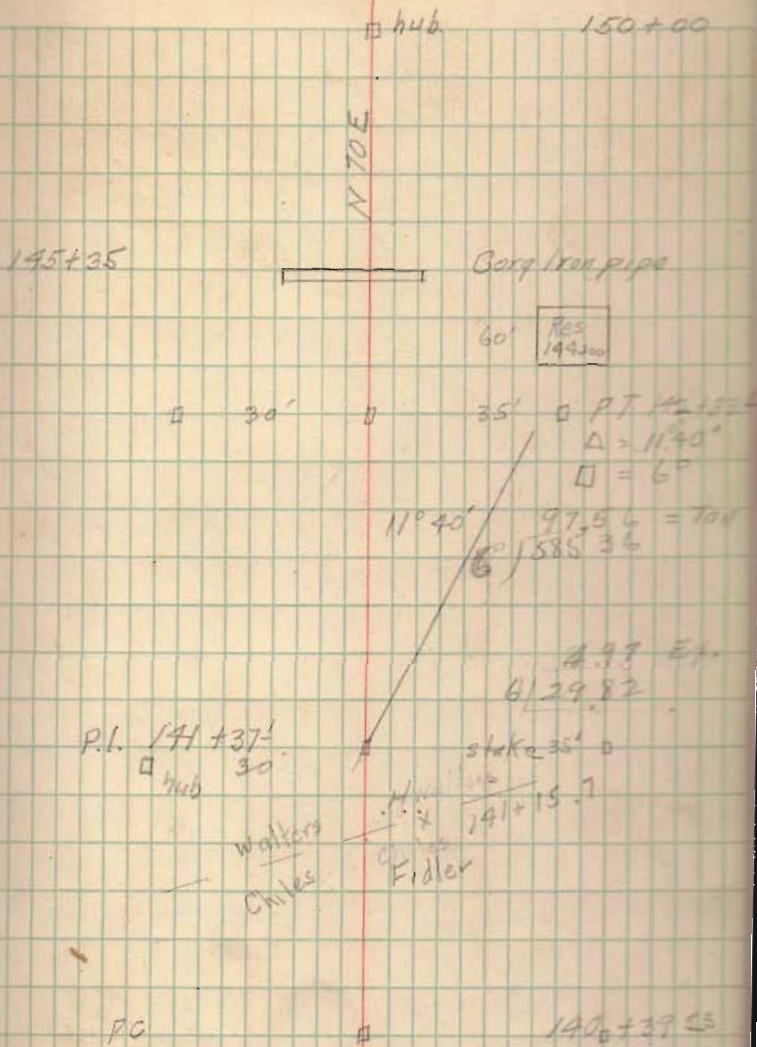 hub 150+00
N 70 E
145+35 Corg Iron pipe
60' Res
144+00
30' 35' PT
Δ = 11°40'
□ = 6°
11°40' 97.56 = Tan
6 ) 585 36
4.97 Ex.
6 | 29.82
P.I. 141 +37 stake 35'
hub 30
141+15.7
Walters
Chiles Fidler
PC 140+39